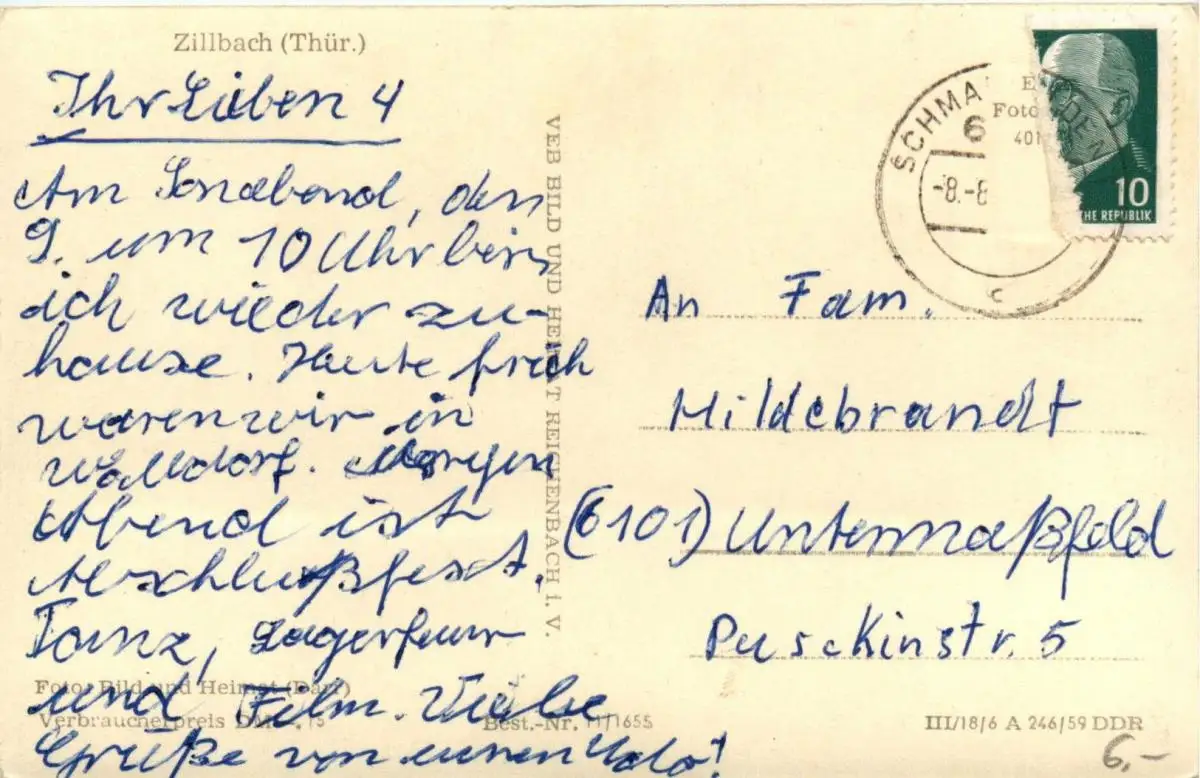 Zillbach (Thür.)
Ihr Lieben 4
Am Sonabend, den
9. um 10 Uhr bin
ich wieder zu-
hause. Heute früh
waren wir in
Walldorf. Morgen
Abend ist
Abschlußfest.
Tanz, Lagerfeuer
und Film. Viele
Grüße von euren
Foto: Bild und Heimat (Darr)
Verbraucherpreis DM
Best.-Nr. 11/1655
VEB BILD UND HEIMAT REICHENBACH i. V.
SCHMA
6
-8.-8
c
Foto
401
10
HE REPUBLIK
An Fam.
Hildebrandt
(6101) Untermaßfeld
Puschkinstr. 5
III/18/6 A 246/59 DDR
6,-